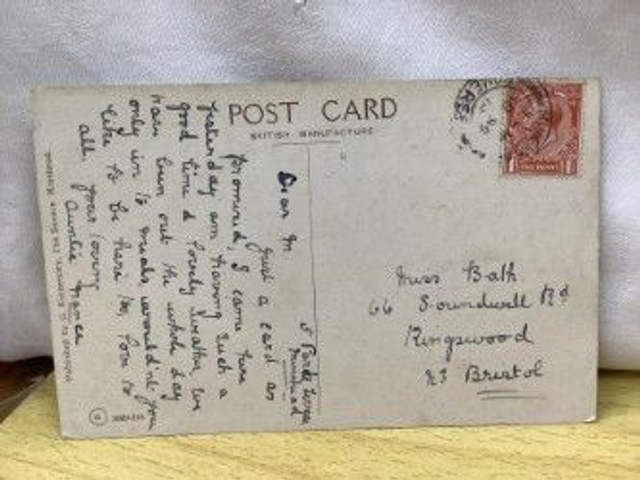 POST CARD
BRITISH MANUFACTURE
5 Park Terrace
Minehead
Dear M
Just a card as
promised, I came here
yesterday am having such a
good time & lovely weather, we
have been out the whole day
only in to meals, wouldn't you
like to be here too, love to
all your loving
Auntie
ONE PENNY
Miss Bath
66 Soundwell Rd
Kingswood
Bristol